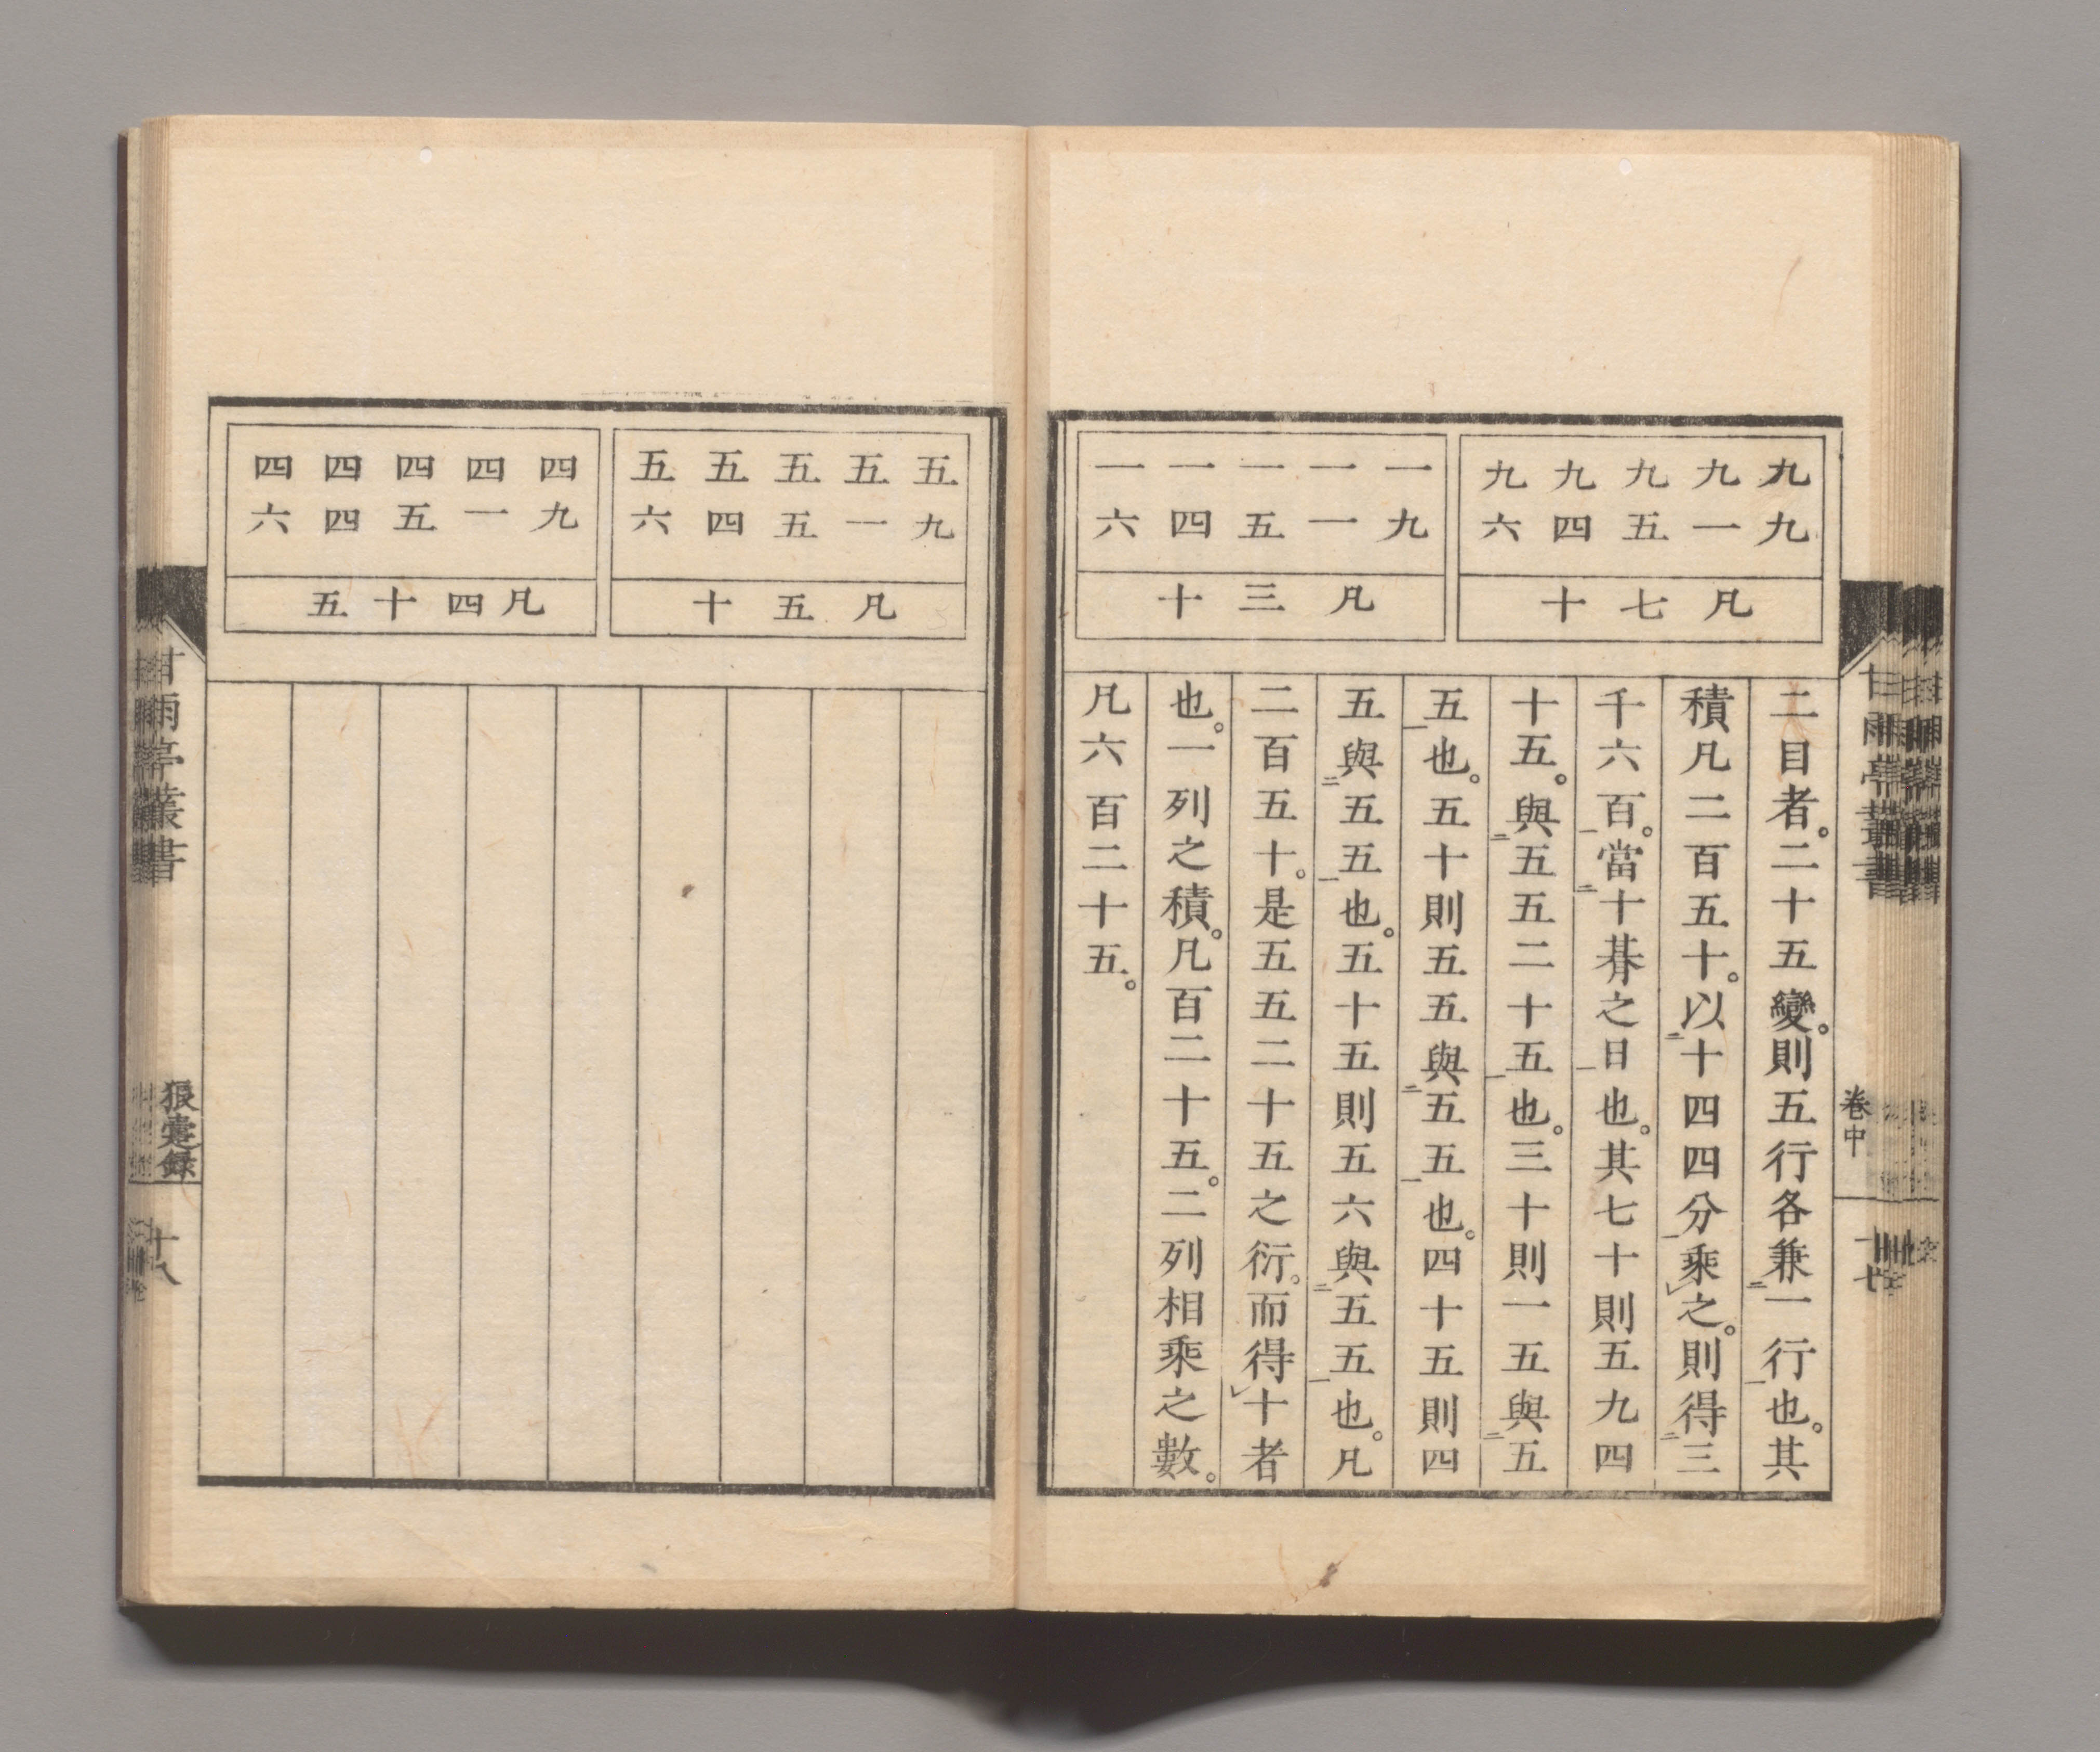 甘雨亭叢書
卷中
十七
九九
九一
九五
九四
九六
凡七十
一九
一一
一五
一四
一六
凡三十
二目者。二十五變。則五行各兼一行也。其
積凡二百五十。以十四四分乘之。則得三
千六百。當十朞之日也。其七十則五九四
十五。與五五二十五也。三十則一五與五
五也。五十則五五與五五也。四十五則四
五與五五也。五十五則五六與五五也。凡
二百五十。是五五二十五之衍。而得十者
也。一列之積。凡百二十五。二列相乘之數。
凡六百二十五。
五九
五一
五五
五四
五六
凡五十
四九
四一
四五
四四
四六
凡四十五
甘雨亭叢書
狼疐録
十八